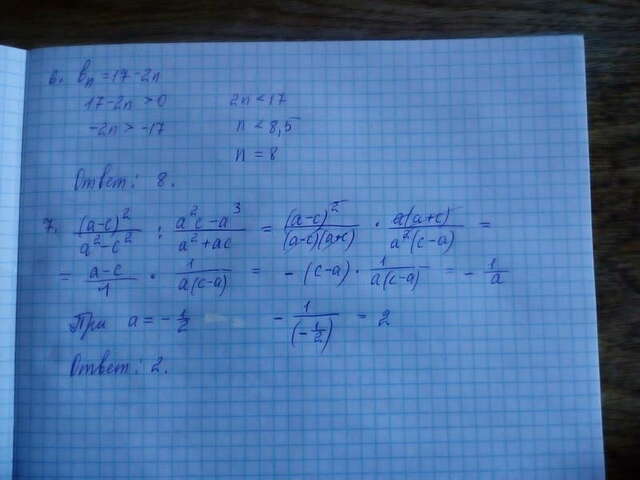 6. bₙ = 17-2n
17-2n > 0 2n < 17
-2n > -17 n < 8,5
n = 8
Ответ: 8.
7. (a-c)²/(a²-c²) : (a²c-a³)/(a²+ac) = (a-c)²/((a-c)(a+c)) · a(a+c)/(a²(c-a)) =
= (a-c)/1 · 1/(a(c-a)) = -(c-a) · 1/(a(c-a)) = -1/a
При a = -1/2 -1/(-1/2) = 2
Ответ: 2.